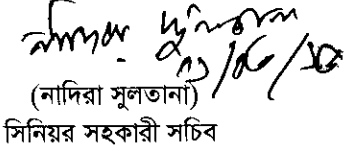 নাদিরা সুলতানা
(নাদিরা সুলতানা)
সিনিয়র সহকারী সচিব